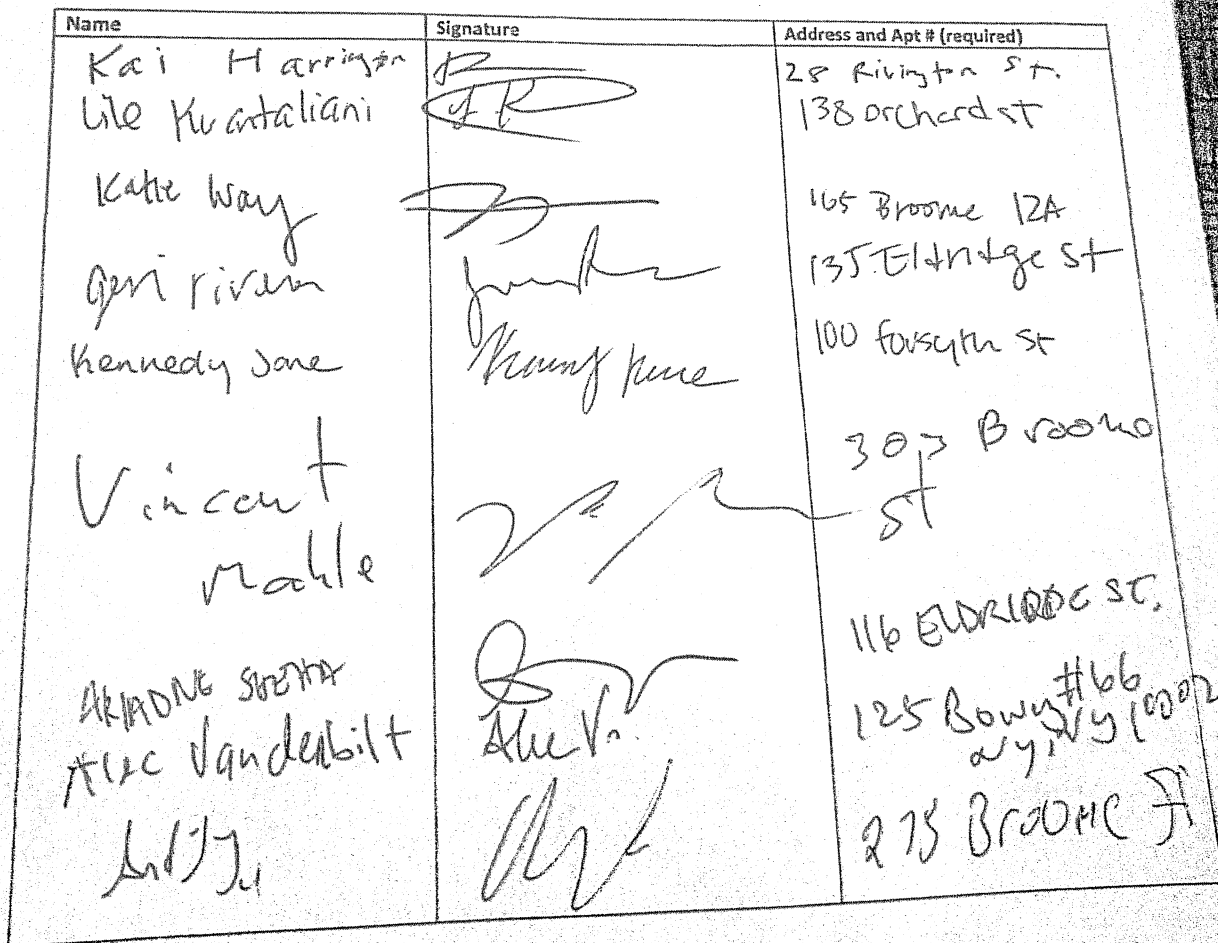 Name Signature Address and Apt # (required)
Kai Harrington 28 Rivington St.
Lile Kvantaliani 138 orchard st
Katie Way 165 Broome 12A
geri rivera 135 Eldridge St
Kennedy Jane 100 forsyth st
Vincent 303 Broome
Mahle st
ARIADNE 116 ELDRIDGE ST.
Alec Vanderbilt Alec V. 125 Bowery #66
NY, NY 10002
275 BROOME St